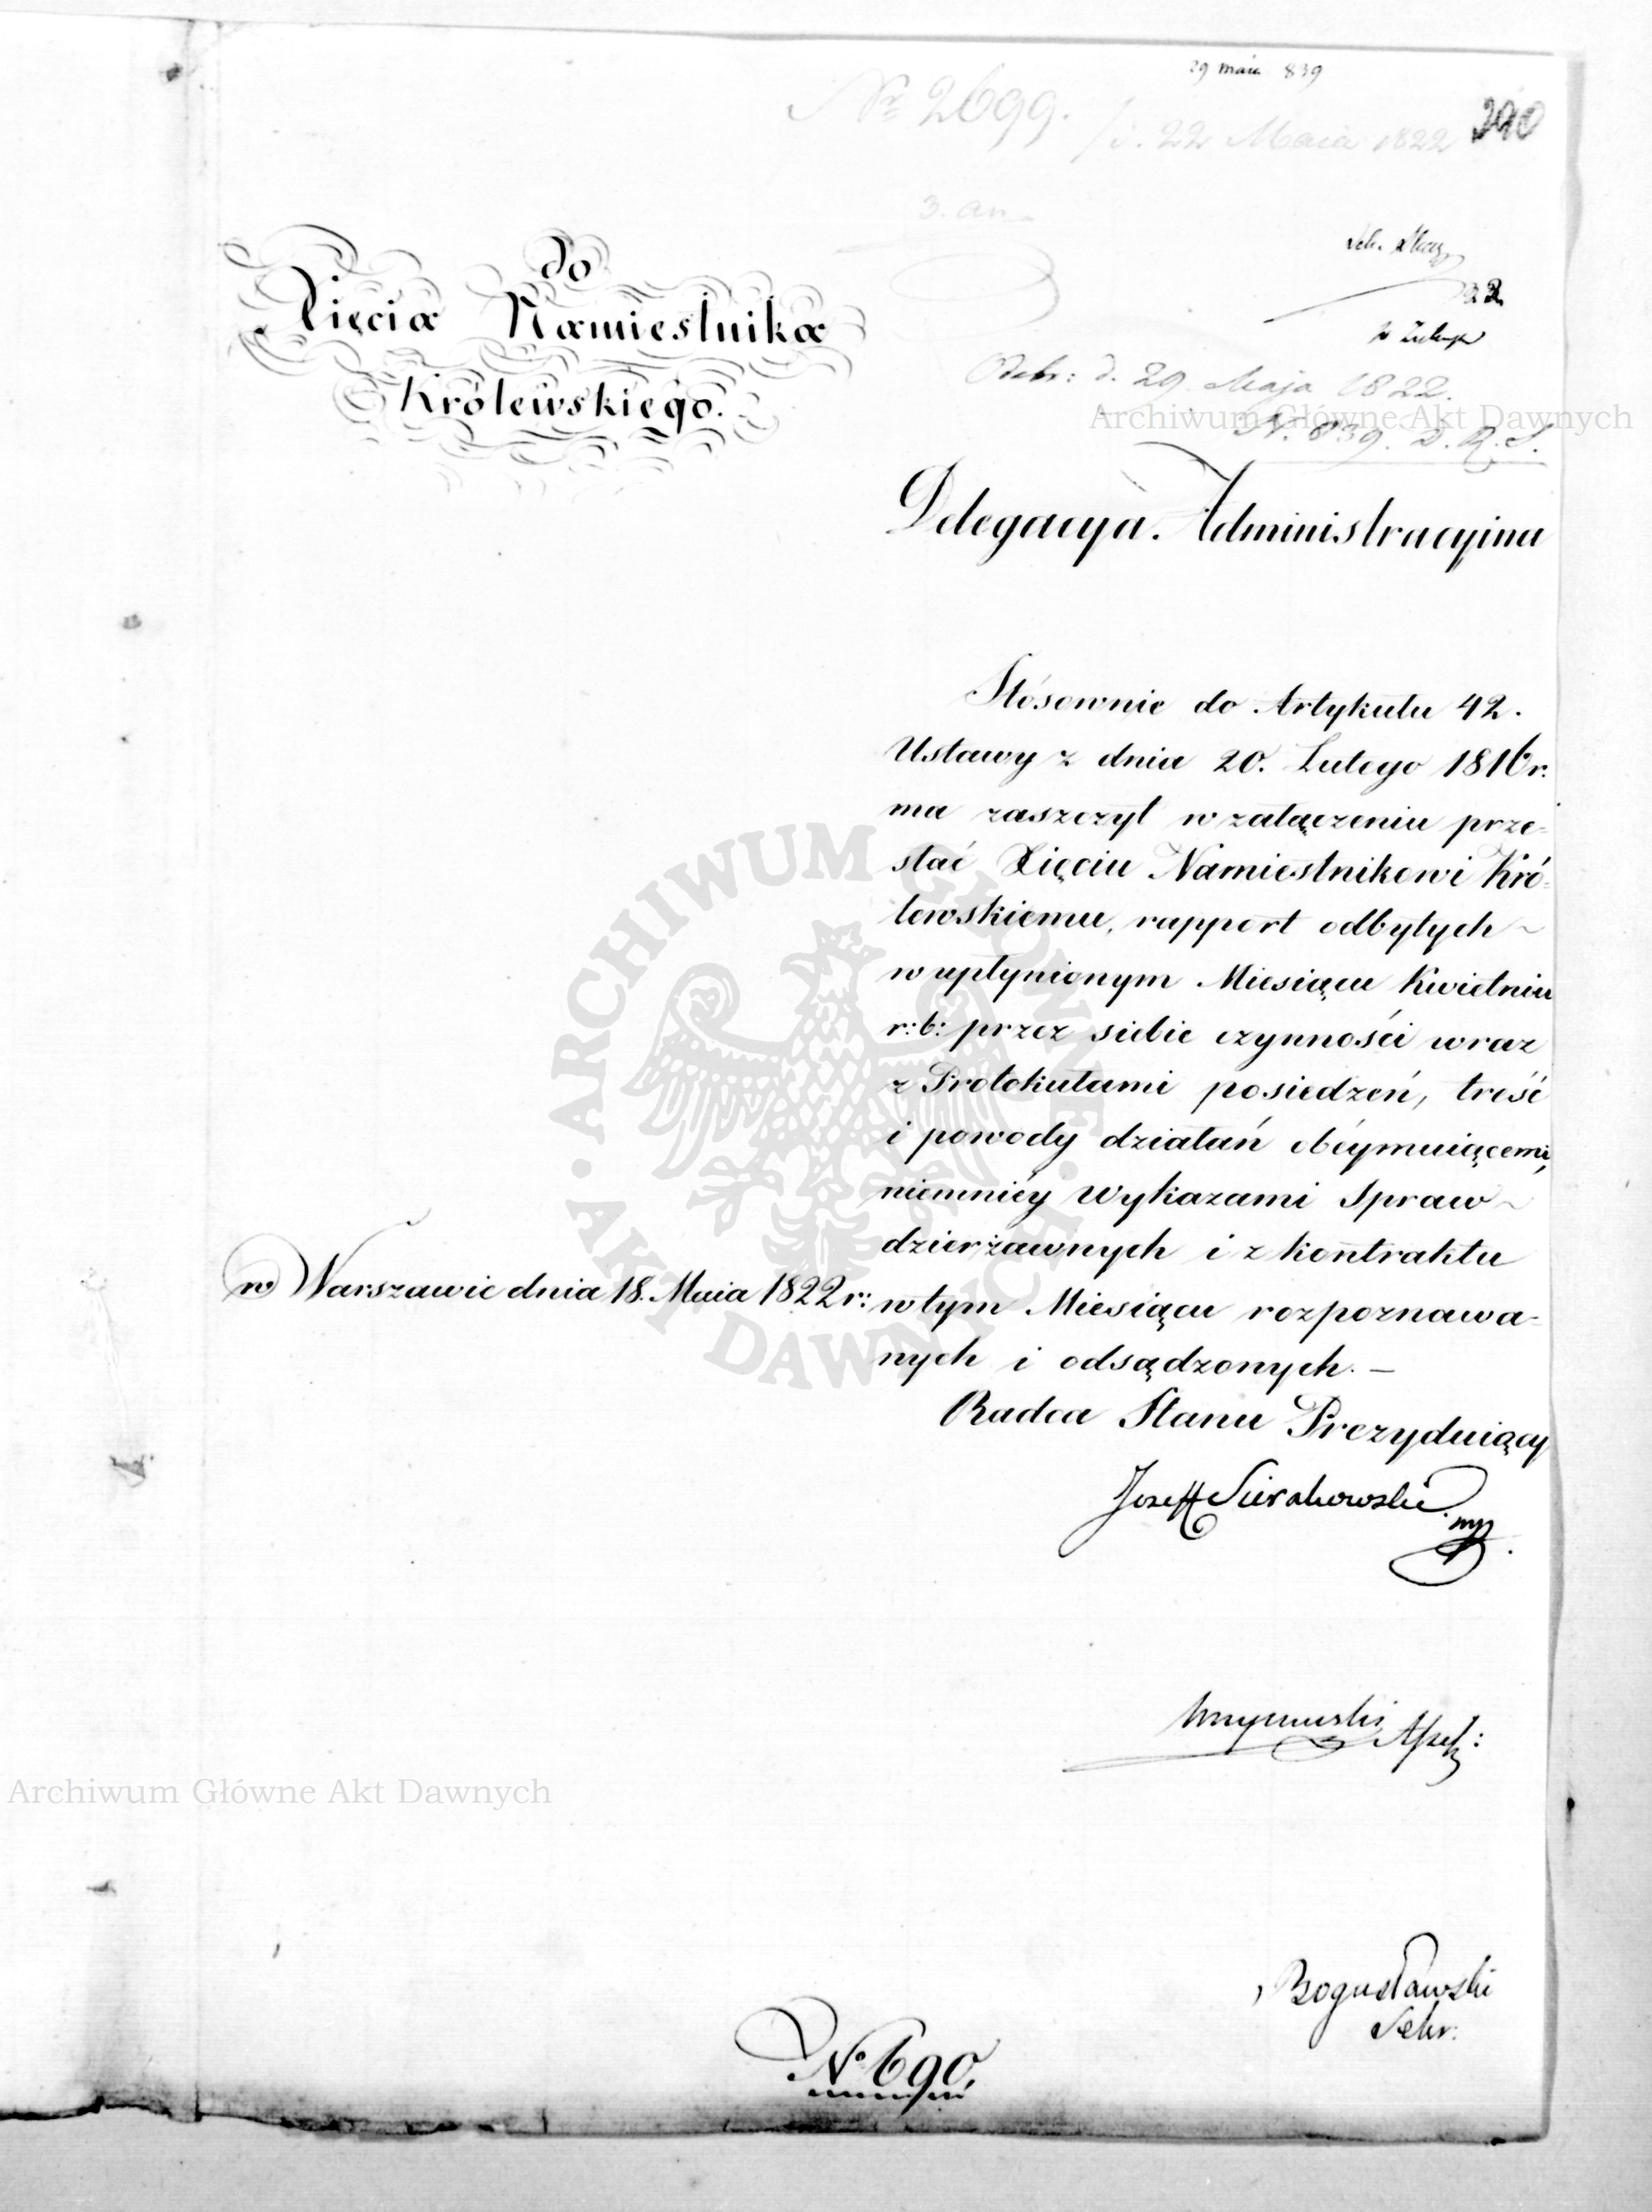 29 maia 839
Nr 2699.
d. 22 Maia 1822
290
3. an
22
do
Xięcia Namiestnika
Królewskiego.
Odebr: d. 29. Maja 1822.
N. 839. D. R. S.
Archiwum Główne Akt Dawnych
Delegacya Administracyina
Stósownie do Artykułu 42.
Ustawy z dnia 20. Lutego 1816 r.
ma zaszczyt w załączeniu prze-
słać Xięciu Namiestnikowi Kró-
lewskiemu, rapport odbytych
w upłynionym Miesiącu Kwietniu
r: b: przez siebie czynności wraz
z Protokułami posiedzeń, treść
i powody działań obéymuiącemi,
niemniéy Wykazami Spraw
dzierżawnych i z kontraktu
w Warszawie dnia 18. Maia 1822 r:
w tym Miesiącu rozpoznawa-
nych i odsądzonych. —
Radca Stanu Prezyduiący
Józeff Sierakowski
mp
Archiwum Główne Akt Dawnych
Bogusławski
Sekr:
No 690.
ARCHIWUM GŁÓWNE · AKT DAWNYCH ·